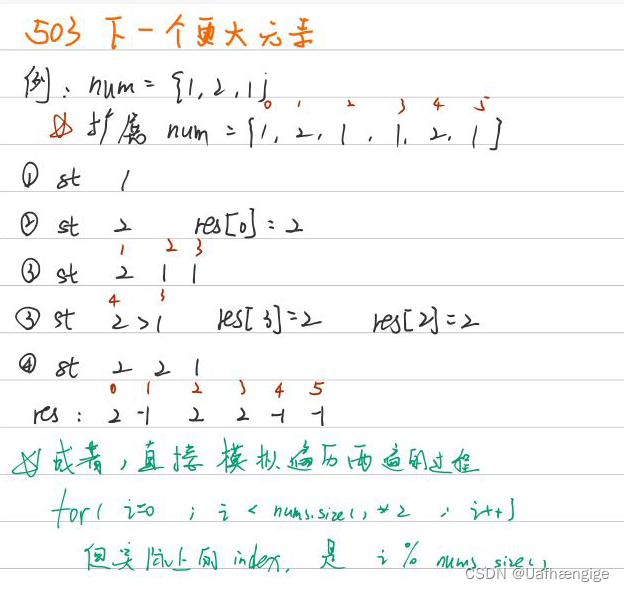 503 下一个更大元素
例: num = {1, 2, 1}
0 1 2 3 4 5
扩展 num = {1, 2, 1, 1, 2, 1}
① st 1
② st 2 res[0] = 2
1 2 3
③ st 2 1 1
4 3
③ st 2 > 1 res[3] = 2 res[2] = 2
④ st 2 2 1
0 1 2 3 4 5
res: 2 -1 2 2 -1 -1
或者, 直接模拟遍历两遍的过程
for( i=0 ; i < nums.size() * 2 ; i++)
但实际上的 index, 是 i % nums.size()
CSDN @Uafhængige